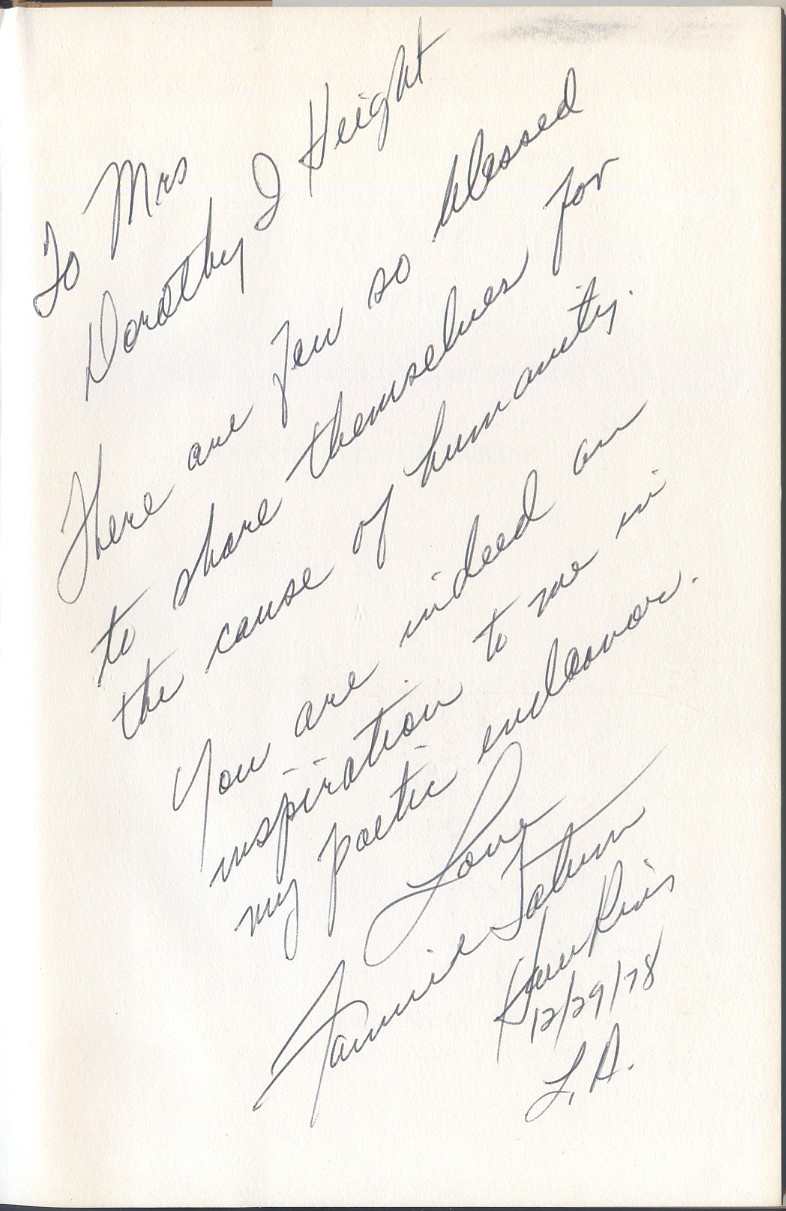 To Mrs
Dorothy I Height
There are few so blessed
to share themselves for
the cause of humanity.
You are indeed an
inspiration to me in
my poetic endeavor.
Love
Fannie Tatum
Hawkins
12/29/78
L.A.